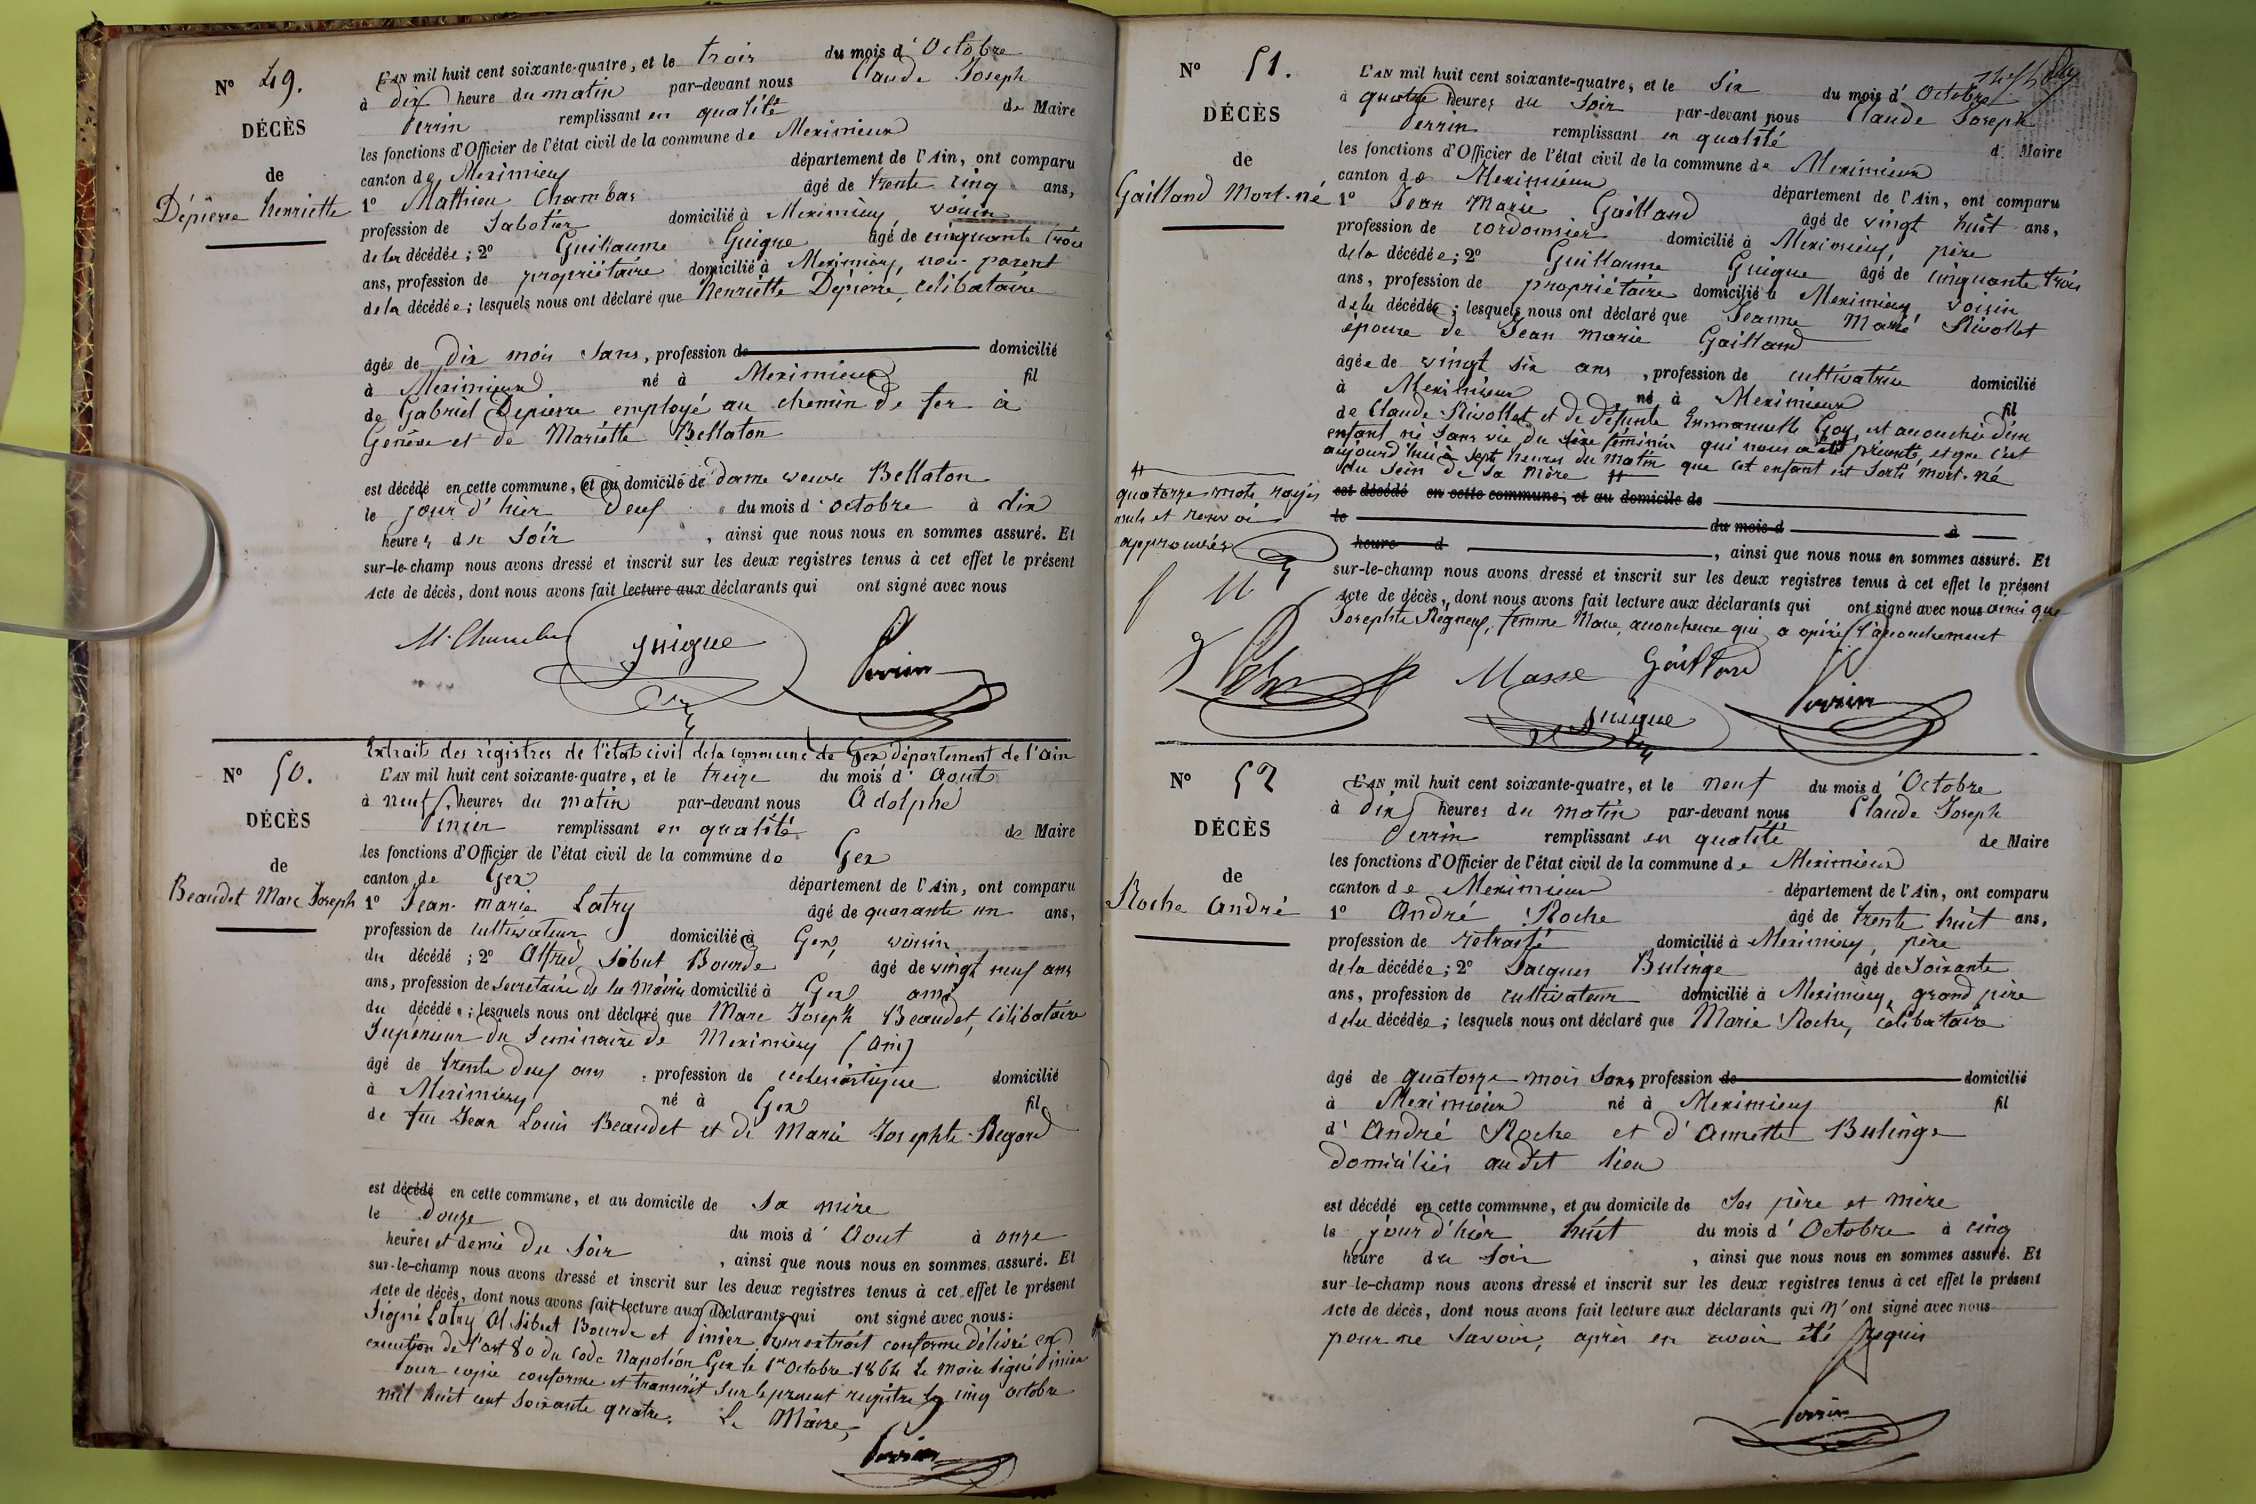 N° 49.
DÉCÈS
de
Dépierre henriette
L'AN mil huit cent soixante-quatre, et le trois du mois d'Octobre
à dix heure du matin par-devant nous Claude Joseph
Perrin remplissant en qualité de Maire
les fonctions d'Officier de l'état civil de la commune de Meximieux
canton de Meximieux département de l'Ain, ont comparu
1° Mathieu Chambas âgé de trente cinq ans,
profession de Sabotier domicilié à Meximieux, voisin
de la décédée; 2° Guillaume Guigue âgé de cinquante trois
ans, profession de propriétaire domicilié à Meximieux, non parent
de la décédée; lesquels nous ont déclaré que henriette Dépierre, célibataire
âgée de dix mois sans, profession de domicilié
à Meximieux né à Meximieux fil
de Gabriel Depierre employé au chemin de fer à
Genève et de Mariette Bellaton
est décédé en cette commune, et au domicile de dame veuve Bellaton
le jour d'hier deux du mois d'octobre à dix
heures du Soir, ainsi que nous nous en sommes assuré. Et
sur-le-champ nous avons dressé et inscrit sur les deux registres tenus à cet effet le présent
Acte de décès, dont nous avons fait lecture aux déclarants qui ont signé avec nous
guigue Perrin
Extrait des régistres de l'état civil de la commune de Gex département de l'ain
N° 50.
DÉCÈS
de
Beaudet Marc Joseph
L'AN mil huit cent soixante-quatre, et le treize du mois d'Aout
à neuf heures du matin par-devant nous Adolphe
Pinier remplissant en qualité de Maire
les fonctions d'Officier de l'état civil de la commune de Gex
canton de Gex département de l'Ain, ont comparu
1° Jean marie Latry âgé de quarante un ans,
profession de cultivateur domicilié à Gex, voisin
du décédé; 2° Alfred Sibut Bourde âgé de vingt neuf ans
ans, profession de Secrétaire de la Mairie domicilié à Gex ami
du décédé; lesquels nous ont déclaré que Marc Joseph Beaudet, célibataire
Supérieur du Seminaire de Meximieux (ain)
âgé de trente deux ans, profession de ecclesiastique domicilié
à Meximieux né à Gex fil
de feu Jean Louis Beaudet et de Marie Josephte Begord
est décédé en cette commune, et au domicile de sa mère
le douze du mois d'Aout à onze
heures et demie du Soir, ainsi que nous nous en sommes assuré. Et
sur-le-champ nous avons dressé et inscrit sur les deux registres tenus à cet effet le présent
Acte de décès, dont nous avons fait lecture aux déclarants qui ont signé avec nous.
Signé Latry Al Sibut Bourde et Pinier Pour extrait conforme délivré en
exécution de l'art 80 du Code Napoléon Gex le 1er Octobre 1864 Le maire signé Pinier
Pour copie conforme et transcrit sur le présent registre le cinq octobre
mil huit cent soixante quatre. Le Maire,
Perrin
N° 51.
DÉCÈS
de
Gailland Mort-né
L'AN mil huit cent soixante-quatre, et le Six du mois d'Octobre
à quatre heures du Soir par-devant nous Claude Joseph
Perrin remplissant en qualité d Maire
les fonctions d'Officier de l'état civil de la commune de Meximieux
canton de Meximieux département de l'Ain, ont comparu
1° Jean Marie Gailland âgé de vingt huit ans,
profession de cordonnier domicilié à Meximieux, père
de la décédée; 2° Guillaume Guigue âgé de cinquante trois
ans, profession de propriétaire domicilié à Meximieux voisin
de la décédée; lesquels nous ont déclaré que Jeanne Marie Rivollet
épouse de Jean marie Gailland
âgée de vingt six ans, profession de cultivatrice domicilié
à Meximieux né à Meximieux fil
de Claude Rivollet et de défunte Emmanuelle Goy, est accouchée d'un
enfant né sans vie, du sexe féminin qui nous a été présenté, et que c'est
aujourd'hui à sept heures du matin que cet enfant est sorti mort-né
du sein de sa mère #
#
quatorze mots rayés
nuls et renvoi
approuvés
est décédé en cette commune, et au domicile de
le du mois d à
heure d, ainsi que nous nous en sommes assuré. Et
sur-le-champ nous avons dressé et inscrit sur les deux registres tenus à cet effet le présent
Acte de décès, dont nous avons fait lecture aux déclarants qui ont signé avec nous ainsi que
Josephte Régneux, femme Masse, accoucheuse qui a opéré l'accouchement
Masse Gailland
guigue Perrin
N° 52
DÉCÈS
de
Roche André
L'AN mil huit cent soixante-quatre, et le neuf du mois d'Octobre
à Dix heures du matin par-devant nous Claude Joseph
Perrin remplissant en qualité de Maire
les fonctions d'Officier de l'état civil de la commune de Meximieux
canton de Meximieux département de l'Ain, ont comparu
1° André Roche âgé de trente huit ans,
profession de retraité domicilié à Meximieux, père
de la décédée; 2° Jacques Bulinge âgé de Soixante
ans, profession de cultivateur domicilié à Meximieux, grand père
de la décédée; lesquels nous ont déclaré que Marie Roche, célibataire
âgé de quatorze mois Sans profession de domicilié
à Meximieux né à Meximieux fil
d'André Roche et d'Annette Bulinge
domiciliés audit lieu
est décédé en cette commune, et au domicile de Ses père et mère
le jour d'hier huit du mois d'Octobre à cinq
heure du Soir, ainsi que nous nous en sommes assuré. Et
sur-le-champ nous avons dressé et inscrit sur les deux registres tenus à cet effet le présent
Acte de décès, dont nous avons fait lecture aux déclarants qui n'ont signé avec nous
pour ne savoir, après en avoir été requis
Perrin